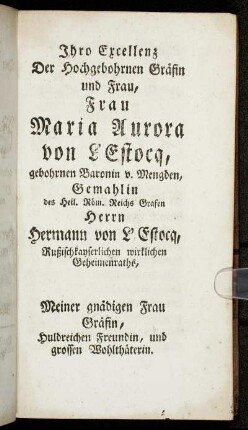 Ihro Excellenz
Der Hochgebohrnen Gräfin
und Frau,
Frau
Maria Aurora
von L'Estocq,
gebohrnen Baronin v. Mengden,
Gemahlin
des Heil. Röm. Reichs Grafen
Herrn
Hermann von L'Estocq,
Rußischkayserlichen wirklichen
Geheimenraths,
Meiner gnädigen Frau
Gräfin,
Huldreichen Freundin, und
grossen Wohlthäterin.